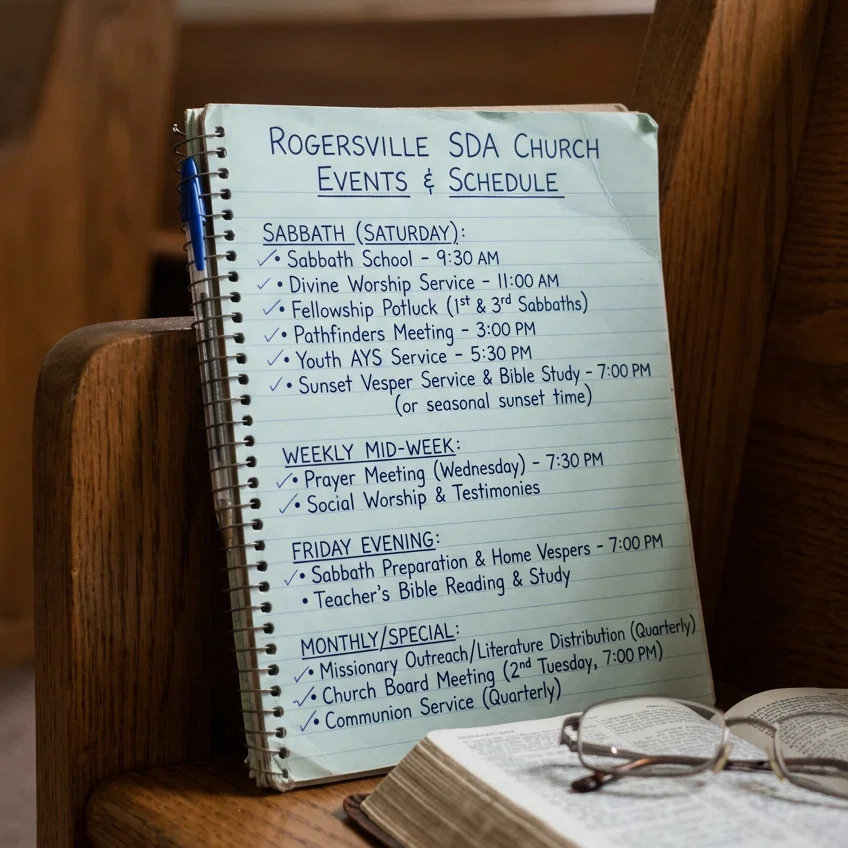 ROGERSVILLE SDA CHURCH
EVENTS & SCHEDULE
SABBATH (SATURDAY):
✓• Sabbath School - 9:30 AM
✓• Divine Worship Service - 11:00 AM
✓• Fellowship Potluck (1st & 3rd Sabbaths)
✓• Pathfinders Meeting - 3:00 PM
✓• Youth AYS Service - 5:30 PM
✓• Sunset Vesper Service & Bible Study - 7:00 PM
(or seasonal sunset time)
WEEKLY MID-WEEK:
✓• Prayer Meeting (Wednesday) - 7:30 PM
✓• Social Worship & Testimonies
FRIDAY EVENING:
✓• Sabbath Preparation & Home Vespers - 7:00 PM
• Teacher's Bible Reading & Study
MONTHLY/SPECIAL:
✓• Missionary Outreach/Literature Distribution (Quarterly)
✓• Church Board Meeting (2nd Tuesday, 7:00 PM)
✓• Communion Service (Quarterly)